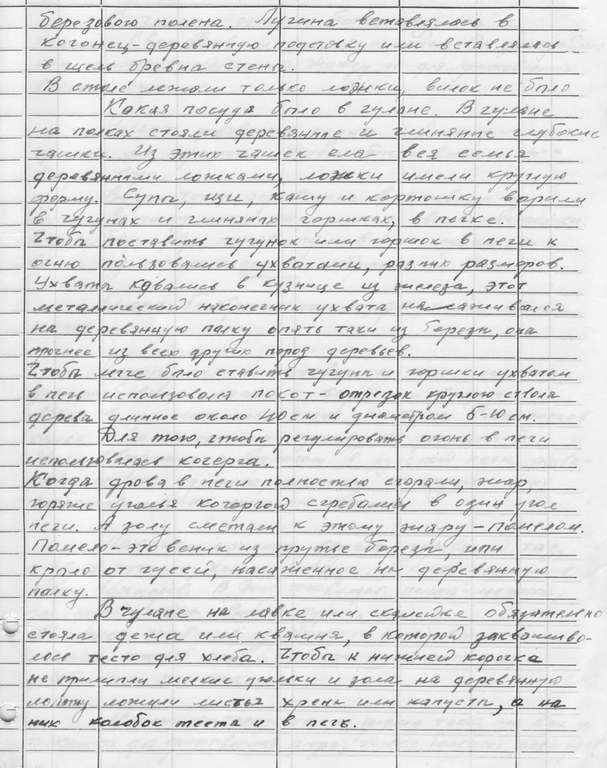 березового полена. Лучина вставлялось в
когонец-деревянную подставку или вставлялась
в щель бревна стены.
В столе лежали только ложки, вилок не было
Какая посуда было в чулане. В чулане
на полках стояли деревянные и глиняные глубокие
чашки. Из этих чашек ела вся семья
деревянными ложками, ложки имели круглую
форму. Супы, щи, кашу и картошку варили
в чугунах и глиняных горшках, в печке.
Чтобы поставить чугунок или горшок в печи к
огню пользовались ухватами, разных размеров.
Ухваты ковались в кузнице из железа, этот
металлический наконечник ухвата насаживался
на деревянную палку опять таки из березы, она
прочнее из всех других пород деревьев.
Чтобы легче было ставить чугуны и горшки ухватом
в печь использовали покот - отрезок круглого ствола
дерева длинное около 40 см и диаметром 6-10 см.
Для того, чтобы регулировать огонь в печи
использовалась кочерга.
Когда дрова в печи полностью сгорали, жар,
горячие уголья кочергой сгребались в один угол
печи. А золу сметали к этому жару - помелом.
Помело - это веник из прутьев березы, или
крыло от гусей, насаженное на деревянную
палку.
В чулане на лавке или скамейке обязательно
стояла дежа или квашня, в которой заквашива-
лось тесто для хлеба. Чтобы к нижней корочке
не прилипли мелкие угольки и зола на деревянную
лопату ложили листья хрена или капусты, а на
них колобок теста и в печь.